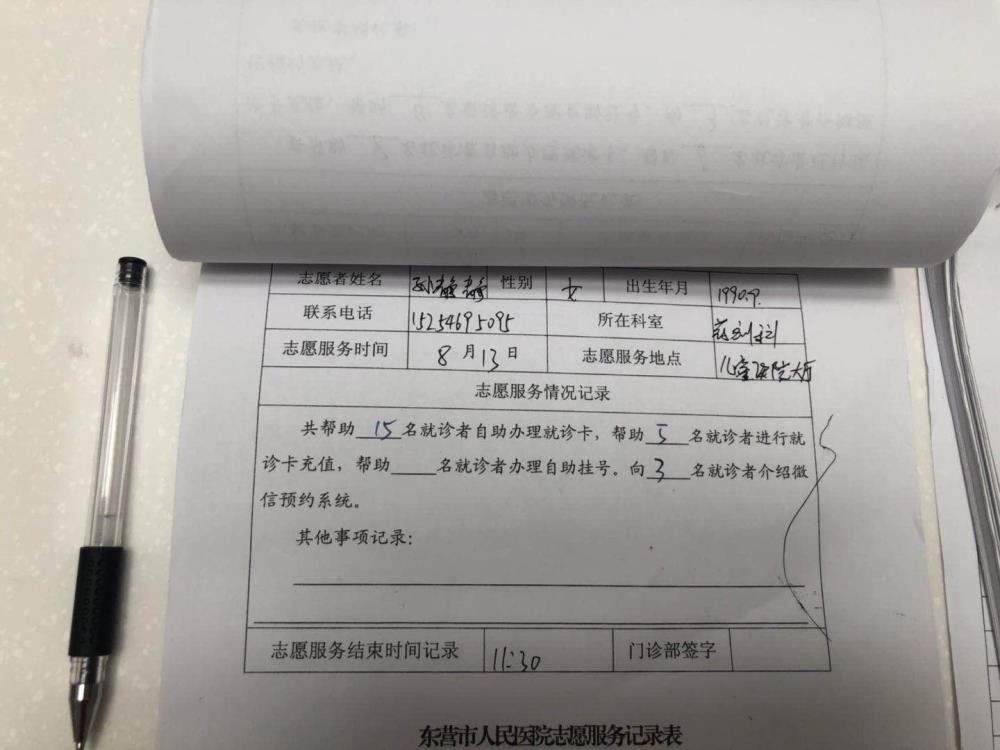 志愿者姓名 孙静静 性别 女 出生年月 1990.9.
联系电话 15254695095 所在科室 药剂科
志愿服务时间 8月13日 志愿服务地点 儿童医院大厅
志愿服务情况记录
共帮助 15 名就诊者自助办理就诊卡，帮助 5 名就诊者进行就
诊卡充值，帮助____名就诊者办理自助挂号。向 3 名就诊者介绍微
信预约系统。
其他事项记录：
志愿服务结束时间记录 11:30 门诊部签字
东营市人民医院志愿服务记录表